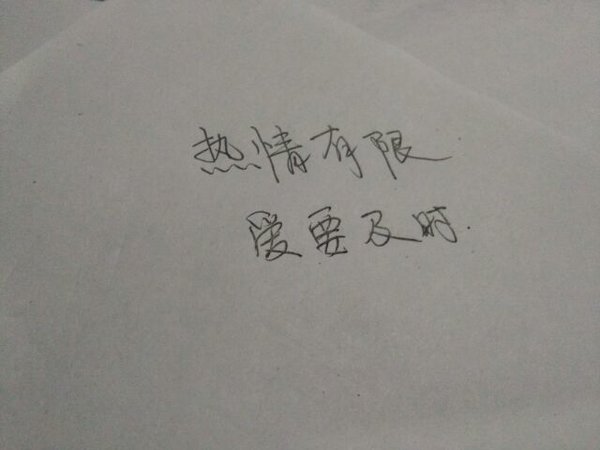 热情有限
爱要及时.